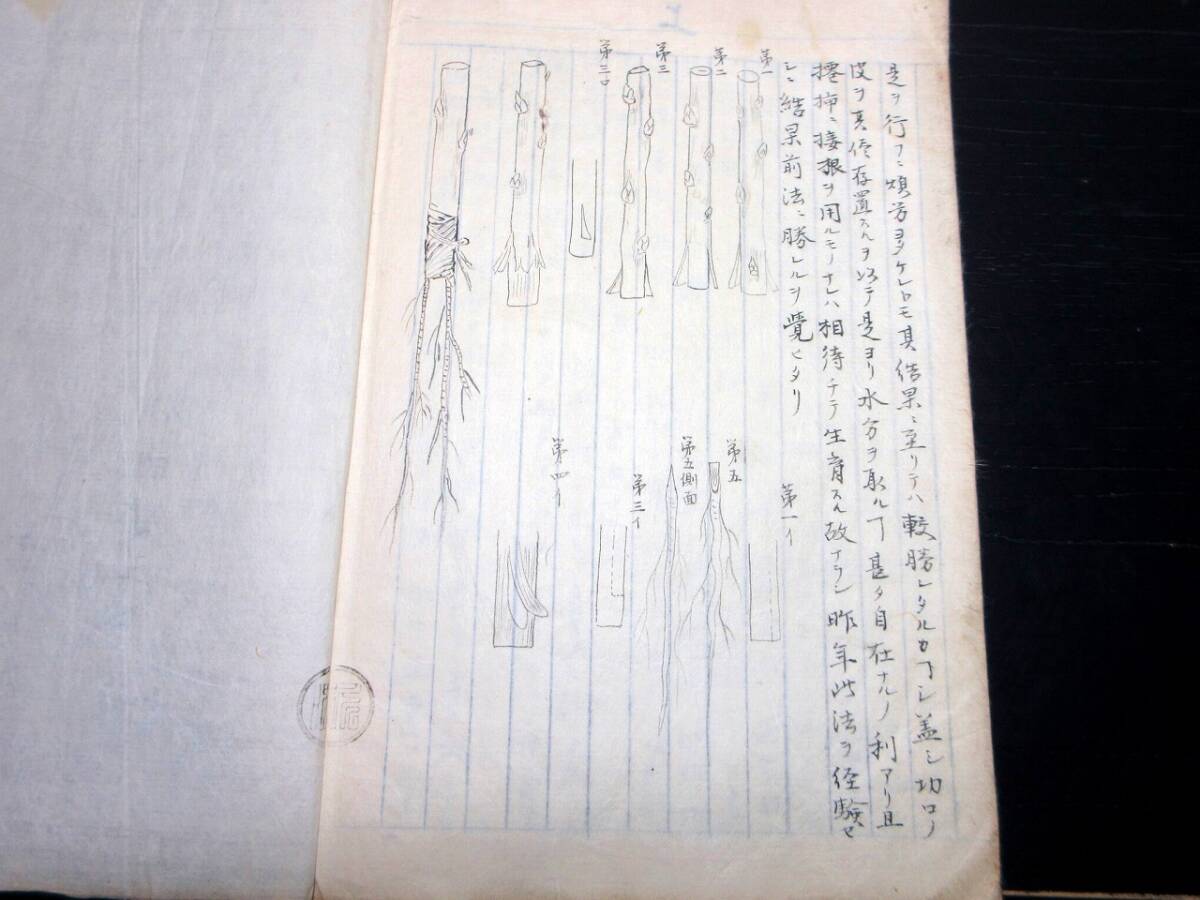 是ヲ行フニ煩労ヨタケレトモ其結果ニ至リテハ較勝レタルカ如シ蓋シ切口ノ
皮ヲ其儘存置スルヲ以テ是ヨリ水分ヲ取ルヿ甚タ自在ナルノ利アリ且
挿ニ接根ヲ用ルモノナレハ相待チテ生育スル故ナラン昨年此法ヲ経験セ
シニ結果前法ニ勝レルヲ覺ヒタリ
第一
第二
第三
第三ロ
第一イ
第五
第五側面
第三イ
第四イ